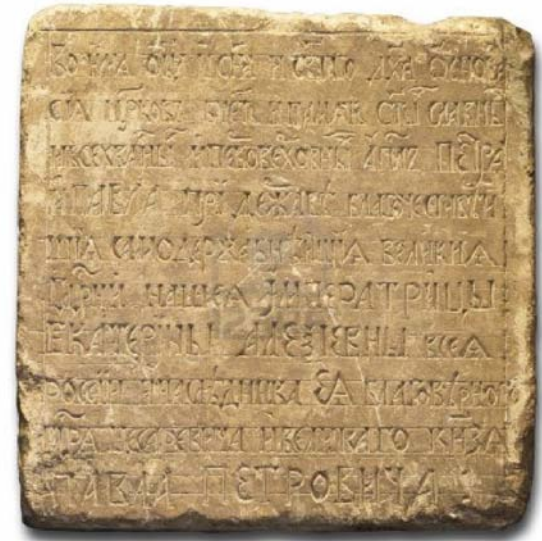 Во имѧ оца и сна и стаго дха ѡснова
сіѧ црковь въ памѧть стых славных
и всехвалных и первоверховных апслъ Петра
и Павла при державѣ благочестивѣй
шїѧ самодержавнѣйшїѧ великиѧ
гдрни нашеѧ императрицы
Екатерины Алеѯіевны всеѧ
россїи и наслѣдника еѧ благовѣрного
гдрѧ цесаревича и великаго кнзѧ
Павла Петровича